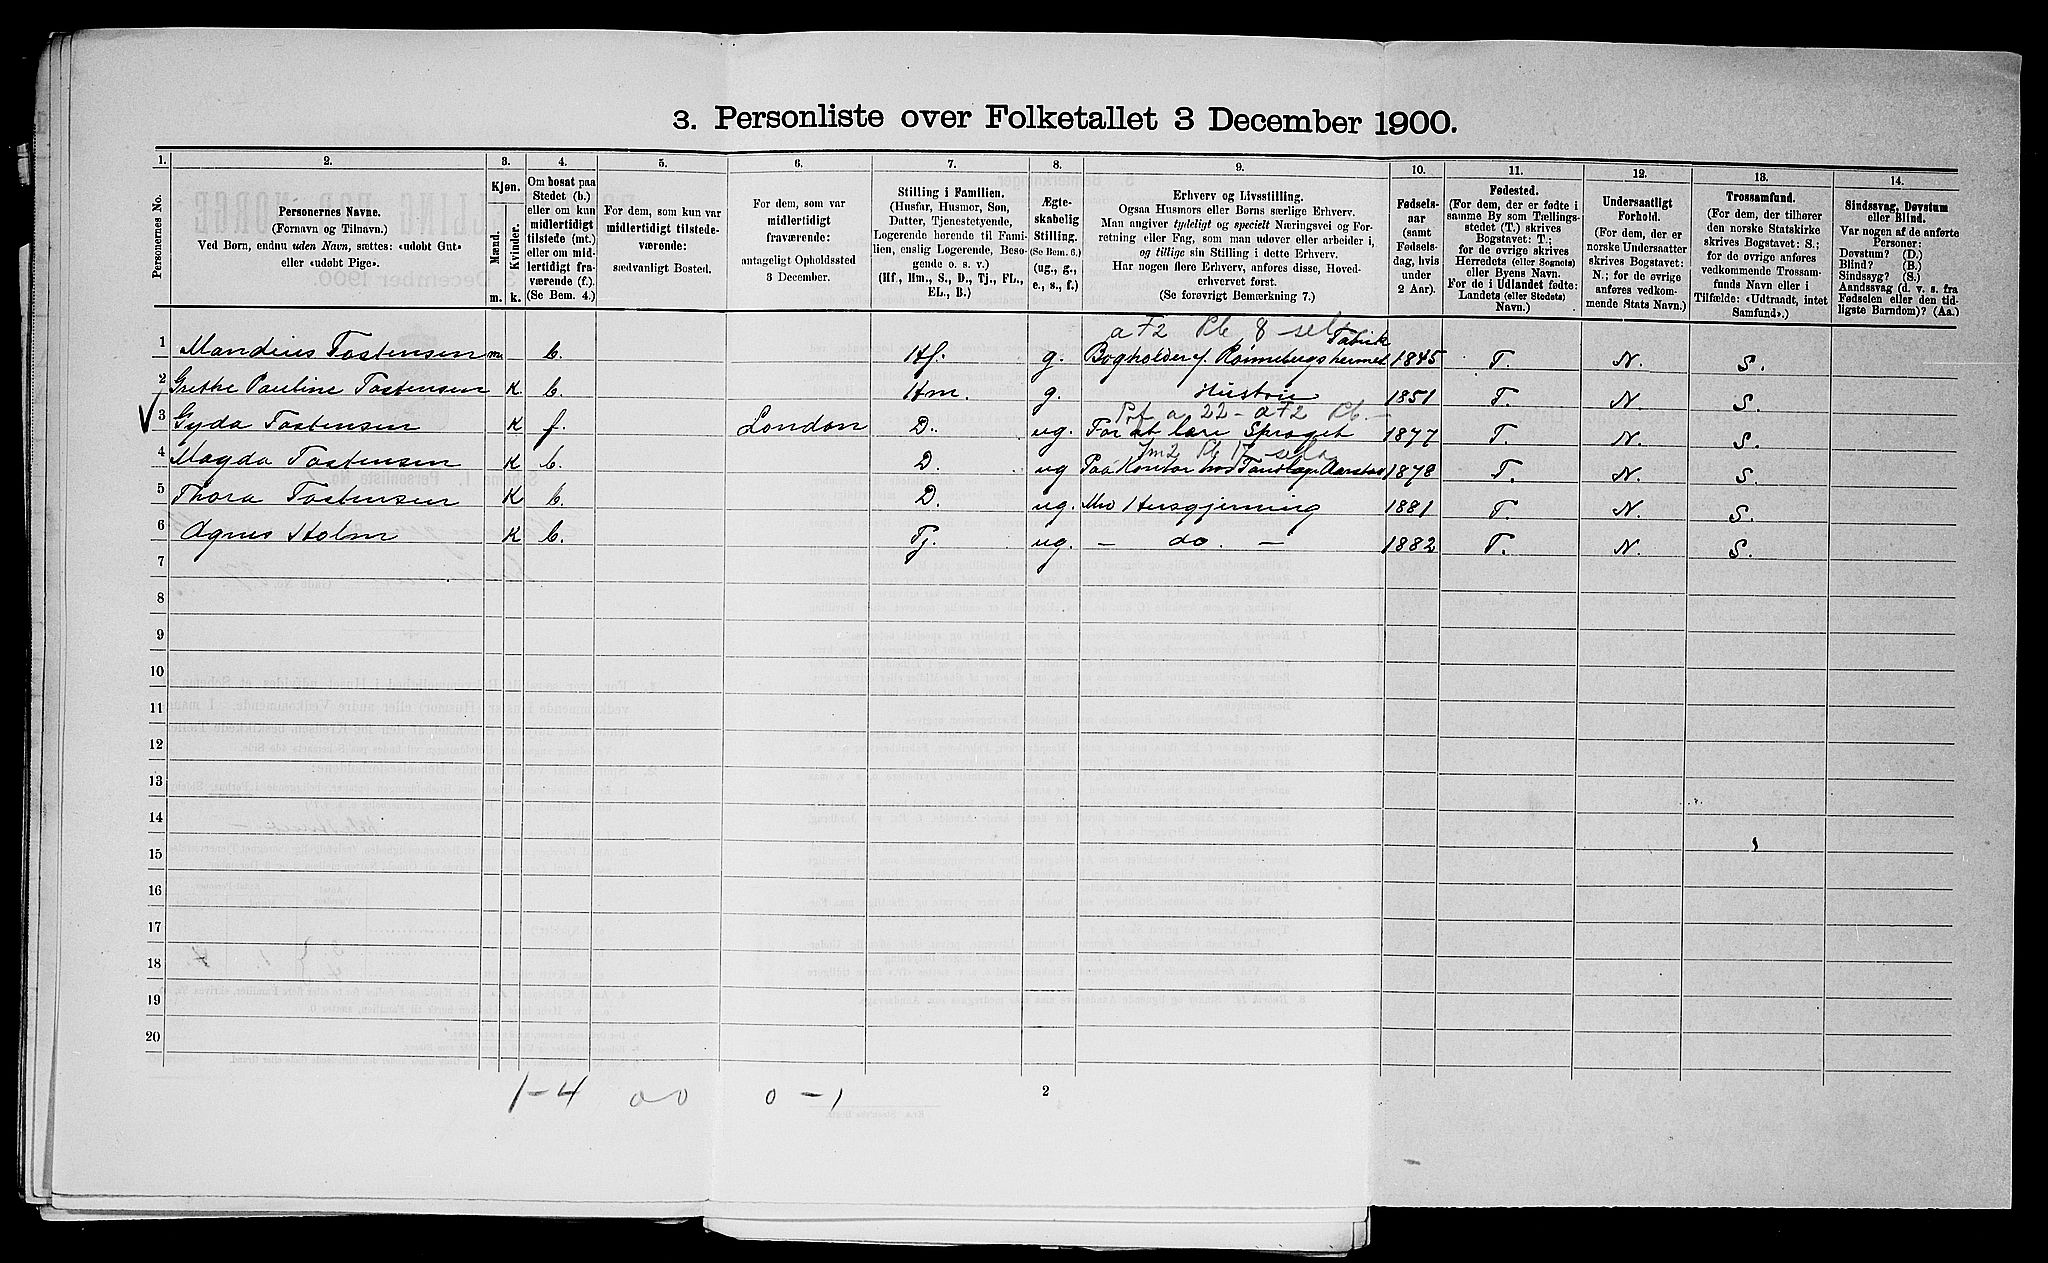 3. Personliste over Folketallet 3 December 1900.
1. 2. 3. 4. 5. 6. 7. 8. 9. 10. 11. 12. 13. 14.
Personernes No.
Personernes Navne.
(Fornavn og Tilnavn.)
Ved Børn, endnu uden Navn, sættes: «udøbt Gut»
eller «udøbt Pige».
Kjøn.
Mænd.
Kvinder.
m. k.
Om bosat paa
Stedet (b.)
eller om kun
midlertidigt
tilstede (mt.)
eller om mid-
lertidigt fra-
værende (f.).
(Se Bem. 4.)
For dem, som kun var
midlertidigt tilstede-
værende:
sædvanligt Bosted.
For dem, som var
midlertidigt
fraværende:
antageligt Opholdssted
3 December.
Stilling i Familien.
(Husfar, Husmor, Søn,
Datter, Tjenestetyende,
Logerende hørende til Fami-
lien, enslig Logerende, Besø-
gende o. s. v.)
(Hf., Hm., S., D., Tj., FL.,
EL., B.)
Ægte-
skabelig
Stilling.
(Se Bem. 6.)
(ug., g.,
e., s., f.)
Erhverv og Livsstilling.
Ogsaa Husmors eller Børns særlige Erhverv.
Man angiver tydeligt og specielt Næringsvei og For-
retning eller Fag, som man udøver eller arbeider i,
og tillige sin Stilling i dette Erhverv.
Har nogen flere Erhverv, anføres disse, Hoved-
erhvervet først.
(Se forøvrigt Bemærkning 7.)
Fødsels-
aar
(samt
Fødsels-
dag, hvis
under
2 Aar).
Fødested.
(For dem, der er fødte i
samme By som Tællings-
stedet (T.) skrives
Bogstavet: T.;
for de øvrige skrives
Herredets (eller Sognets)
eller Byens Navn.
For de i Udlandet fødte:
Landets (eller Stedets)
Navn.)
Undersaatligt
Forhold.
(For dem, der er
norske Undersaatter
skrives Bogstavet:
N.; for de øvrige
anføres vedkom-
mende Stats Navn.)
Trossamfund.
(For dem, der tilhører
den norske Statskirke
skrives Bogstavet: S.;
for de øvrige anføres
vedkommende Trossam-
funds Navn eller i
Tilfælde: «Udtraadt, intet
Samfund».)
Sindssvag, Døvstum
eller Blind.
Var nogen af de anførte
Personer:
Døvstum? (D.)
Blind? (B.)
Sindssyg? (S.)
Aandssvag (d. v. s. fra
Fødselen eller den tid-
ligste Barndom)? (Aa.)
a F2 Pb 8 Fabrik
1 Mandius Tostensen m. b. Hf. g. Bogholder v/ Rønnebergs hermet. 1845 T. N. S.
2 Grethe Pauline Tostensen K b. Hm. g. Hustru 1851 T. N. S.
Prf a 22 - a F2 Pb. -
3 Gyda Tostensen K f. London D. ug. For at lære Sproget 1877 T. N. S.
Pb 17
4 Magda Tostensen K b. D. ug Paa Kontor hos Tandlæge Aarstad 1878 T. N. S.
5 Thora Tostensen K b. D. ug. Med Husgjerning 1881 T. N. S.
6 Agnes Holm K b. Tj. ug. - do. - 1882 T. N. S.
7
8
9
10
11
12
13
14
15
16
17
18
19
20
1-4 0 0 0-1
2